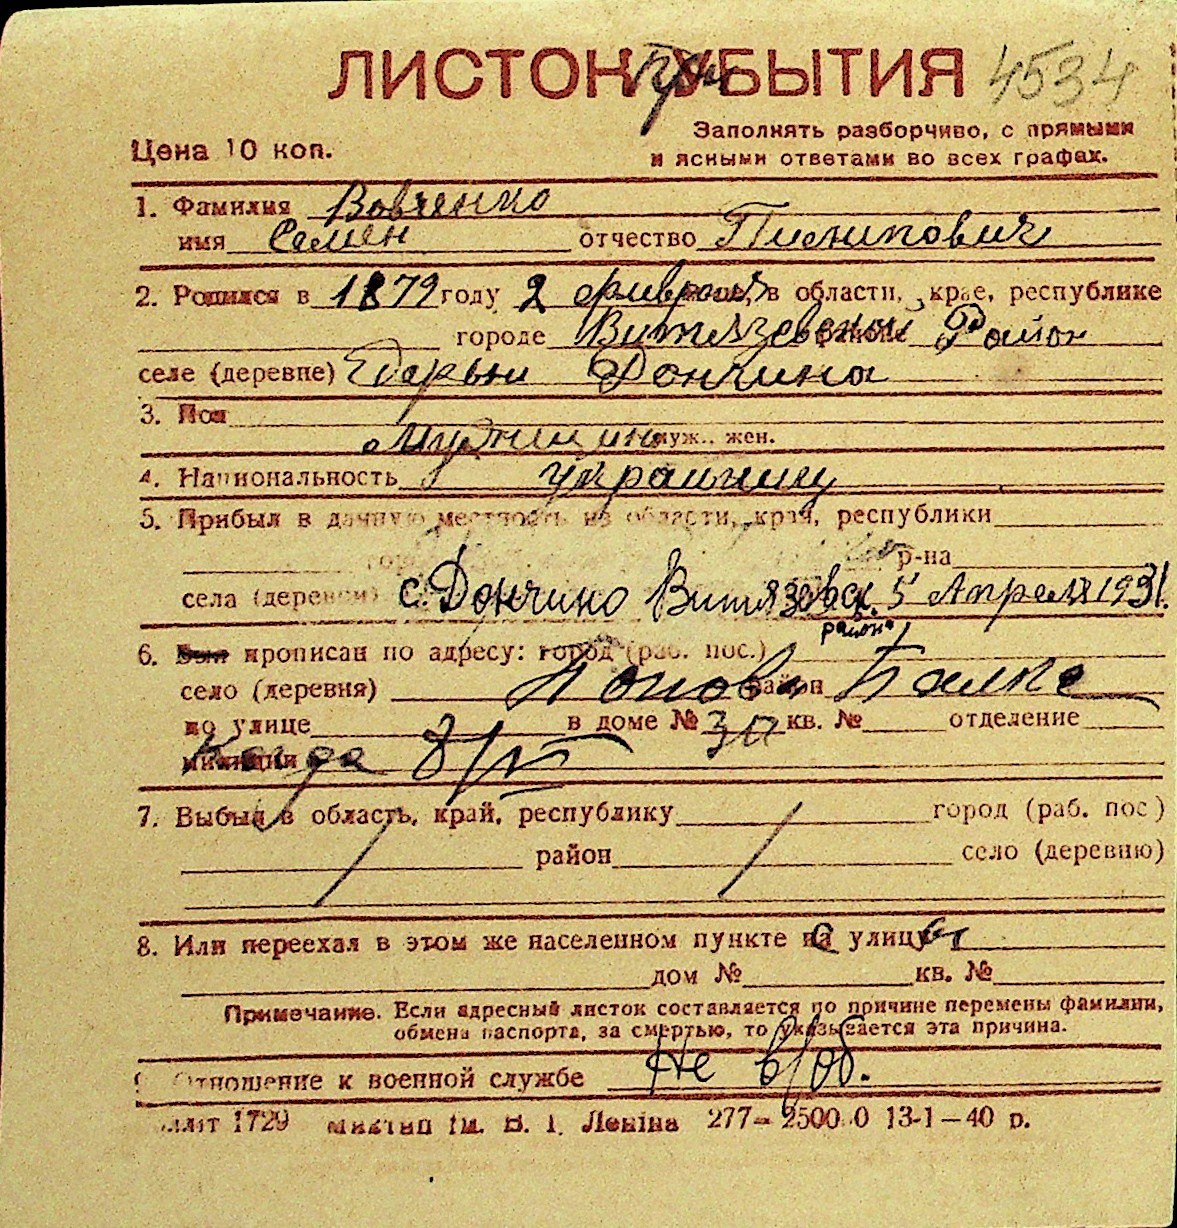 ЛИСТОК УБЫТИЯ При 4534
Цена 10 коп.
Заполнять разборчиво, с прямыми
и ясными ответами во всех графах.
1. Фамилия Вовченко
имя Семен отчество Пилипович
2. Родился в 1879 году 2 февраля в области, крае, республике
городе Витязевский Район
селе (деревне) Дончина
3. Пол
Мужчина муж., жен.
4. Национальность украинец
5. Прибыл в данную местность из области, края, республики
р-на
села (деревни) с. Дончино Витязовск. 5 Апреля 1931.
района
6. Был прописан по адресу: город (раб. пос.)
село (деревня) Попова район Балке
по улице в доме № 30 кв. № отделение
милиции Канда 8/IV
7. Выбыл в область, край, республику город (раб. пос.)
район село (деревню)
8. Или переехал в этом же населенном пункте на улицу
дом № кв. №
Примечание. Если адресный листок составляется по причине перемены фамилии,
обмена паспорта, за смертью, то указывается эта причина.
Отношение к военной службе Не в/об.
1729 ім. В. І. Леніна 277–2500 0 13-1–40 р.